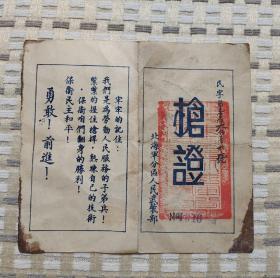 民字第
號
槍證
北海軍分區人民武裝部
牢牢的記住：
我們是為勞動人民服務的子弟兵！
緊緊的握住槍桿，熟練自己的技術
，保衛咱們翻身的勝利！
保衛民主和平！
勇敢！前進！